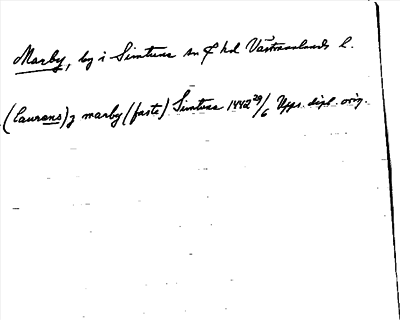 Marby, by i Simtuna sn o hd Västmanlands l.
(laurens) j marby (faste) Simtuna 1442 29/6 Upps. dipl. orig.